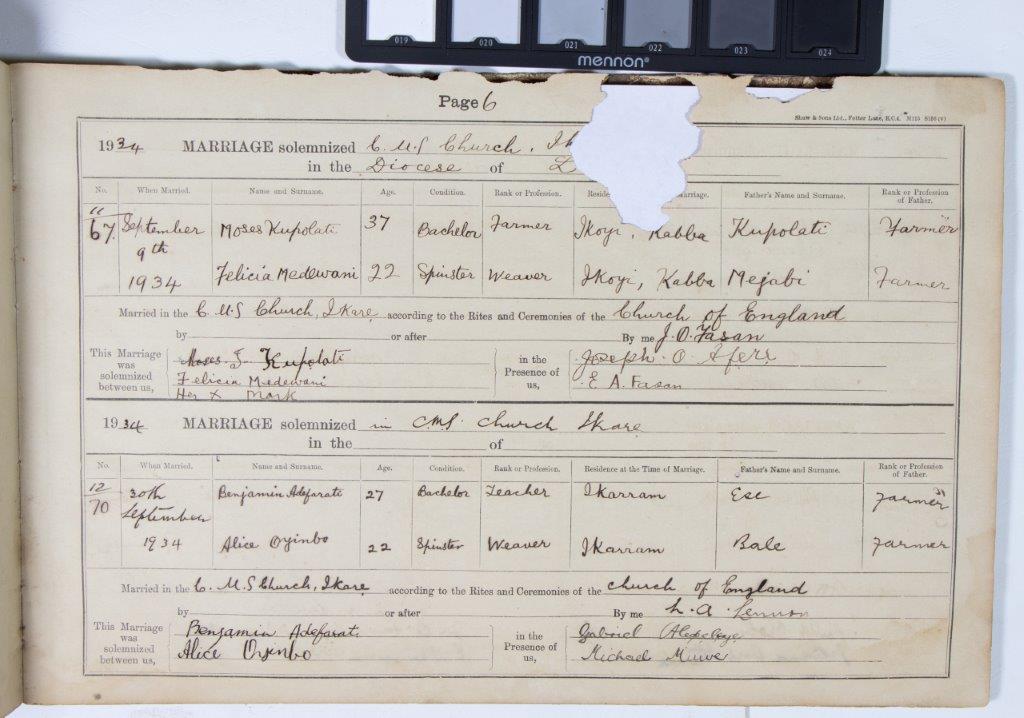 019 020 021 022 023 024
mennon®
Page 6
Shaw & Sons Ltd., Fetter Lane, E.C.4.
1934 MARRIAGE solemnized C.M.S Church,
in the Diocese of
No. When Married. Name and Surname. Age. Condition. Rank or Profession. Father's Name and Surname. Rank or Profession of Father.
11
67. September Moses Kupolati 37 Bachelor Farmer Ikoyi, Kabba Kupolati Farmer
9th
1934 Felicia Medewani 22 Spinster Weaver Ikoyi, Kabba Mejabi Farmer
Married in the C.M.S Church, Ikare according to the Rites and Ceremonies of the Church of England
by or after By me J. O. Fasan
This Marriage was solemnized between us,
Moses J. Kupolati
Felicia Medewani
Her X Mark
in the Presence of us,
Joseph O.
E A. Fasan
1934 MARRIAGE solemnized in C.M.S. Church Ikare
in the of
No. When Married. Name and Surname. Age. Condition. Rank or Profession. Residence at the Time of Marriage. Father's Name and Surname. Rank or Profession of Father.
12
70 30th Benjamin Adefarati 27 Bachelor Teacher Ikarram Ese Farmer
September
1934 Alice Oyinbo 22 Spinster Weaver Ikarram Bale Farmer
Married in the C.M.S Church, Ikare according to the Rites and Ceremonies of the Church of England
by or after By me L. A. Lennon
This Marriage was solemnized between us,
Benjamin Adefarati
Alice Oyinbo
in the Presence of us,
Gabriel
Michael